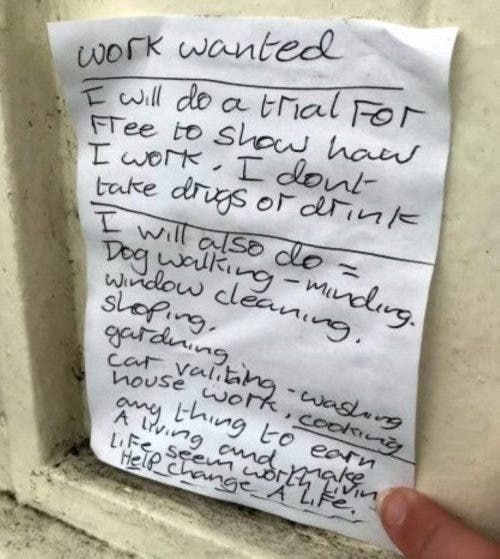 work wanted
I will do a trial For
Free to show haw
I work. I dont
take drugs or drink
I will also do =
Dog walking - minding.
window cleaning.
shoping.
gardning
car valiting - washing
house work, cooking
any thing to earn
A living and make
LiFe seem worth Livin
Help change A LiFe.